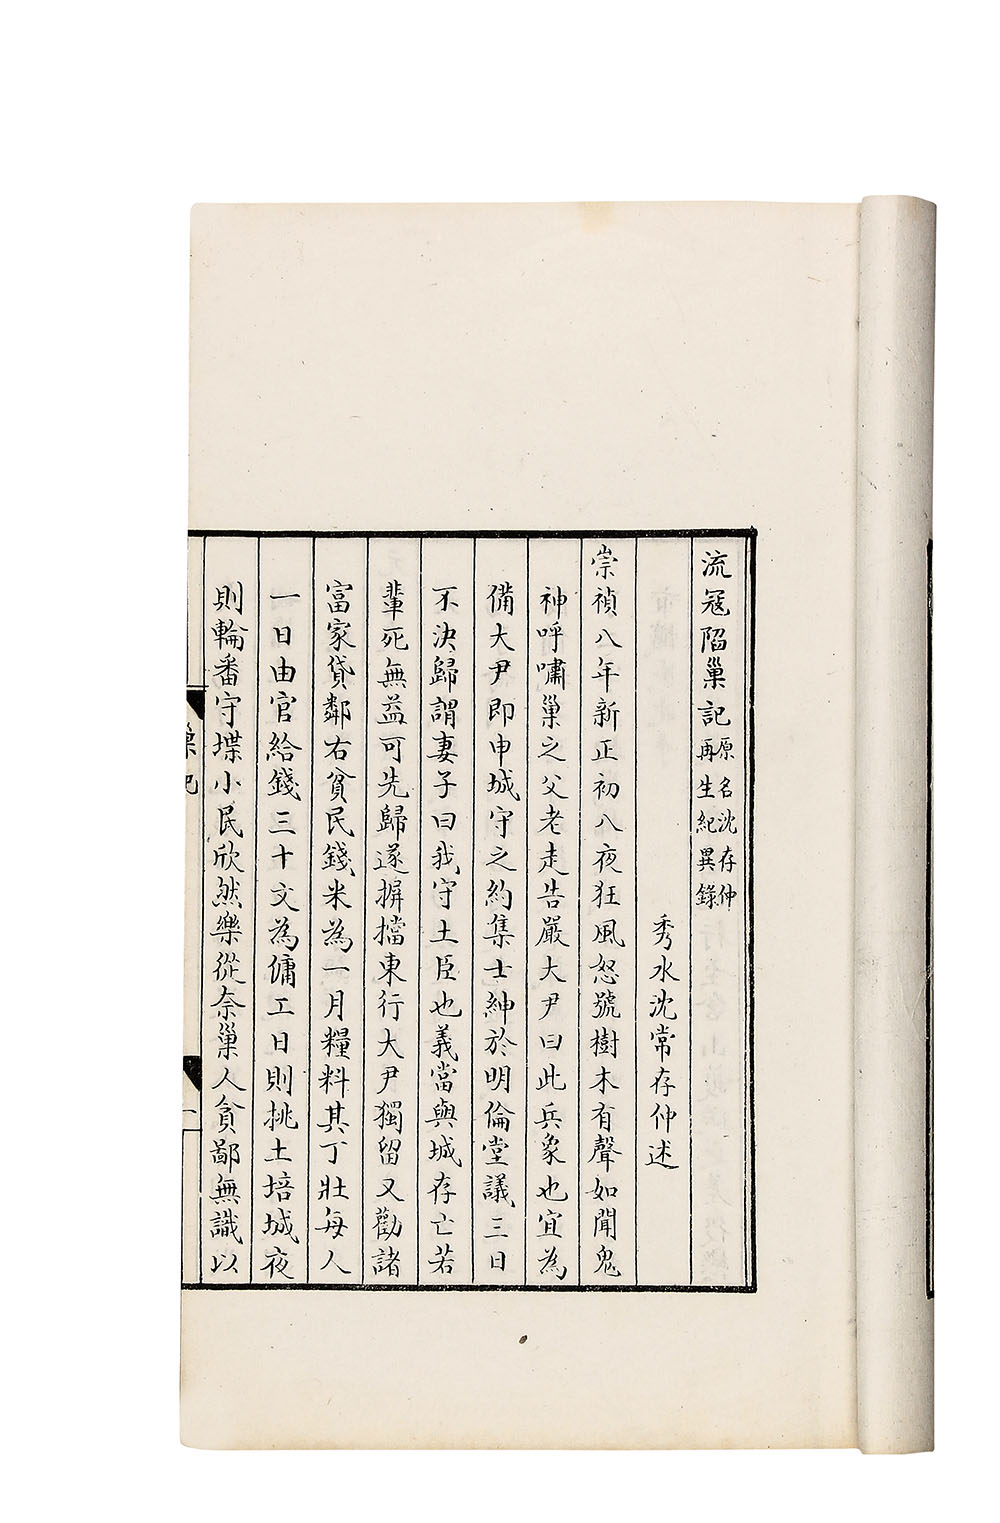 流寇陷巢記 原名沈存仲再生紀異錄
秀水沈常存仲述
崇禎八年新正初八夜狂風怒號樹木有聲如聞鬼
神呼嘯巢之父老走告嚴大尹曰此兵象也宜為
備大尹即申城守之約集士紳於明倫堂議三日
不決歸謂妻子曰我守土臣也義當與城存亡若
輩死無益可先歸遂摒擋東行大尹獨留又勸諸
富家貸鄰右貧民錢米為一月糧料其丁壯每人
一日由官給錢三十文為傭工日則挑土培城夜
則輪番守堞小民欣然樂從奈巢人貪鄙無識以
巢記
一